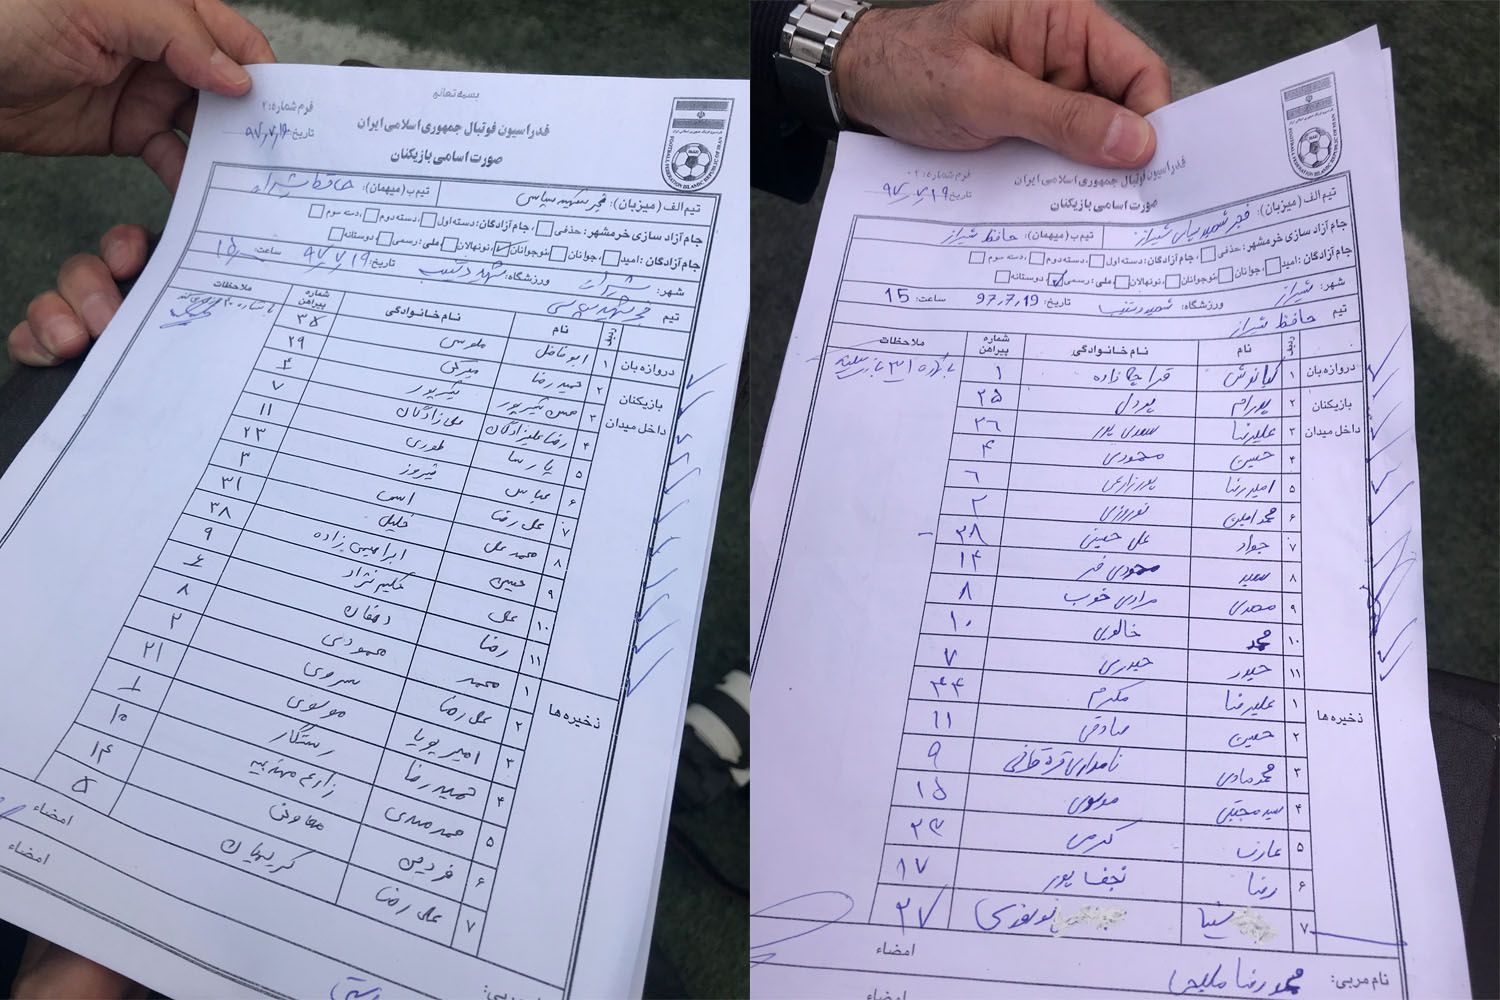 بسمه تعالی
فرم شماره: ۲
فدراسیون فوتبال جمهوری اسلامی ایران
تاریخ: ۹۷٫۷٫۱۹
صورت اسامی بازیکنان
تیم الف (میزبان): فجر شهید سپاسی
تیم ب (میهمان): حافظ شیراز
جام آزاد سازی خرمشهر: حذفی جام آزادگان: دسته اول دسته دوم دسته سوم
جام آزادگان: امید جوانان نوجوانان نونهالان ملی: رسمی دوستانه
شهر: شیراز ورزشگاه: شهید دستغیب تاریخ: ۹۷٫۷٫۱۹ ساعت: ۱۵
تیم فجر شهید سپاسی
ردیف نام نام خانوادگی شماره پیراهن ملاحظات
دروازه بان ۱ ابوفاضل موسی ۳۵
بازیکنان ۲ حمیدرضا میرکی ۲۹
داخل میدان ۳ ۴
۴ رضا علیزادگان علیزادگان ۷
۵ پارسا طوری ۱۱
۶ عباس فیروز ۲۳
۷ علی رضا ۳
۸ محمد علی خلیلی ۳۱
۹ حسین ابراهیمی زاده ۳۸
۱۰ علی حکیم نژاد ۹
۱۱ رضا دهقان ۶
ذخیره ها ۱ محمد محمودی ۸
۲ علی رضا سروی ۲
۳ امیر پویا موسوی ۲۱
۴ حمیدرضا رستگار ۱
۵ محمد مهدی زارع مهذبیه ۱۰
۶ فردین معاونی ۱۴
۷ علی رضا کریمیان ۵
امضاء
امضاء
فرم شماره: ۲
فدراسیون فوتبال جمهوری اسلامی ایران
تاریخ: ۹۷٫۷٫۱۹
صورت اسامی بازیکنان
تیم الف (میزبان): فجر شهید سپاسی شیراز
تیم ب (میهمان): حافظ شیراز
جام آزاد سازی خرمشهر: حذفی جام آزادگان: دسته اول دسته دوم دسته سوم
جام آزادگان: امید جوانان نوجوانان نونهالان ملی: رسمی دوستانه
شهر: شیراز ورزشگاه: شهید دستغیب تاریخ: 97٫7٫19 ساعت: 15
تیم حافظ شیراز
ردیف نام نام خانوادگی شماره پیراهن ملاحظات
دروازه بان ۱ کیانوش قراچه زاده ۱
بازیکنان ۲ پدرام پردل ۲۵
داخل میدان ۳ علیرضا سعدی پور ۲۶
۴ حسین محمودی ۴
۵ امیررضا پورزارعی ۶
۶ محمد امین نوروزی ۲
۷ جواد علی حسینی ۳۸
۸ سعید محمودی فر ۱۴
۹ مهدی مرادی خوب ۸
۱۰ محمد خالوی ۱۰
۱۱ حیدر حیدری ۷
ذخیره ها ۱ علیرضا مکرم ۴۴
۲ حسین صادقی ۱۱
۳ محمدهادی نامداری قره قانی ۹
۴ سید مجتبی موسوی ۱۵
۵ عارف کرمی
۶ رضا نجفا پور ۱۷
۷ ۳۷
امضاء
نام مربی: محمدرضا